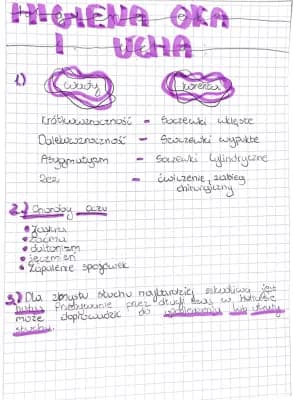 HIGIENA OKA
I UCHA
1.) wady korekta
Krótkowzroczność - Soczewki wklęsłe
Dalekowzroczność - Soczewki wypukłe
Astygmatyzm - Soczewki Cylindryczne
Zez - ćwiczenie, zabieg
chirurgiczny
2.) Choroby oczu
• Jaskra
• Zaćma
• daltonizm
• jęczmień
• Zapalenie spojówek
3.) Dla zmysłu słuchu najbardziej szkodliwy jest
hałas. Przebywanie przez długi czas w hałasie
może doprowadzić do lub utraty
słuchu.